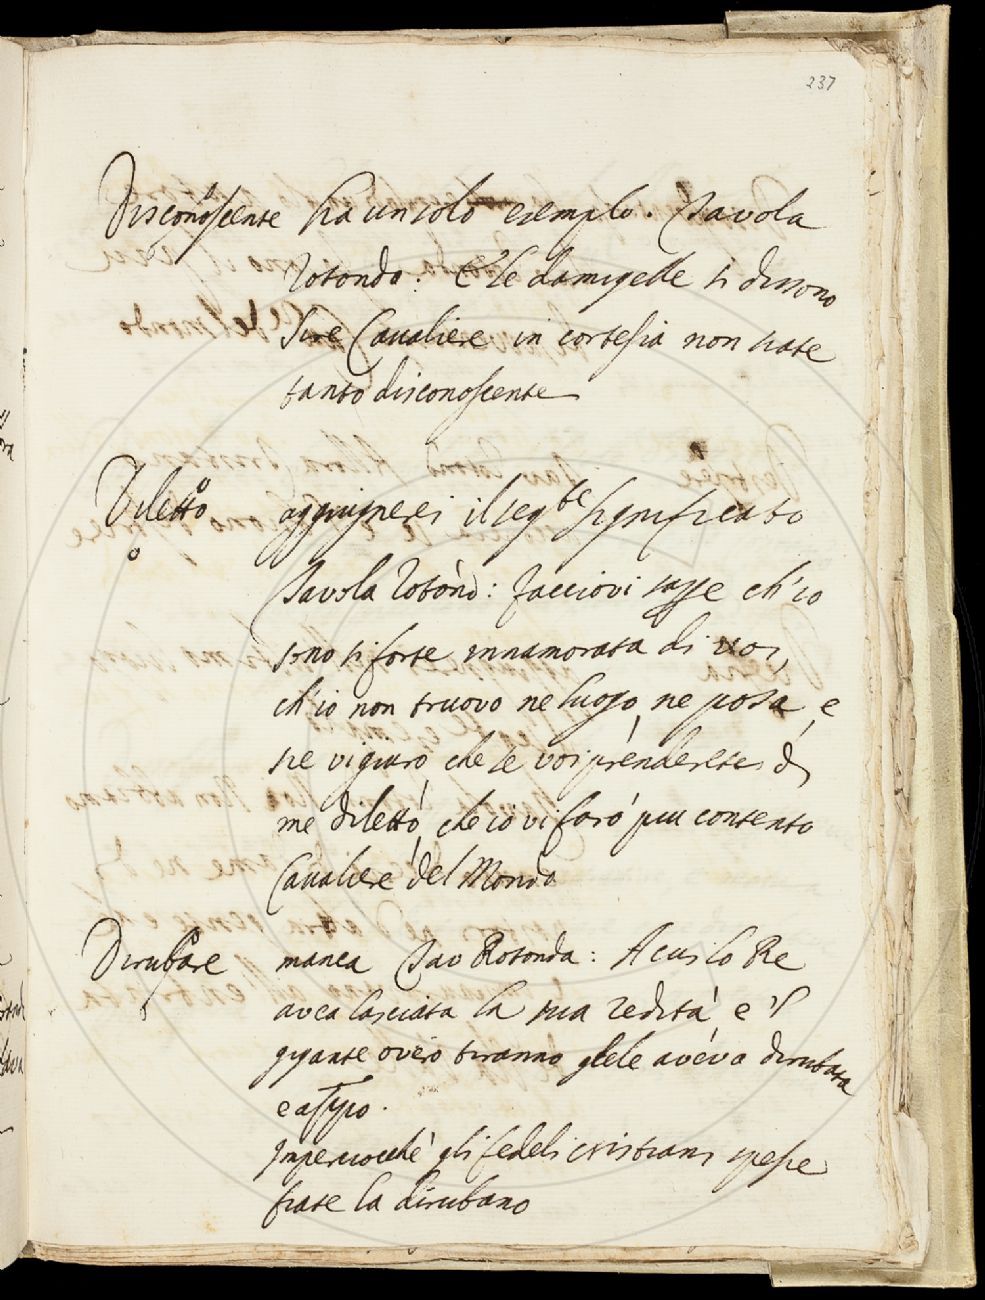 237
Disconoscente ha un solo esemplo. Tavola
Rotonda: E le damigelle si dissono
Sire Cavaliere in cortesia non siate
tanto disconoscente
Diletto aggiugnerei il seg.te significato
Tavola Rotond: Facciovi sasse ch'io
sono si forte innamorata di voi,
ch'io non truovo ne luogo, ne posa, e
sie vi giuro, che se voi prenderete di
me diletto, che io vi farò piu contento
Cavaliere del Mondo
Dirubare manca Tav Rotonda: A cui lo Re
avea lasciata la sua redità, e 'l
gigante overo tiranno glele aveva dirubata
e
Imperciocchè gli fedeli cristiani spesse
fiate la dirubano